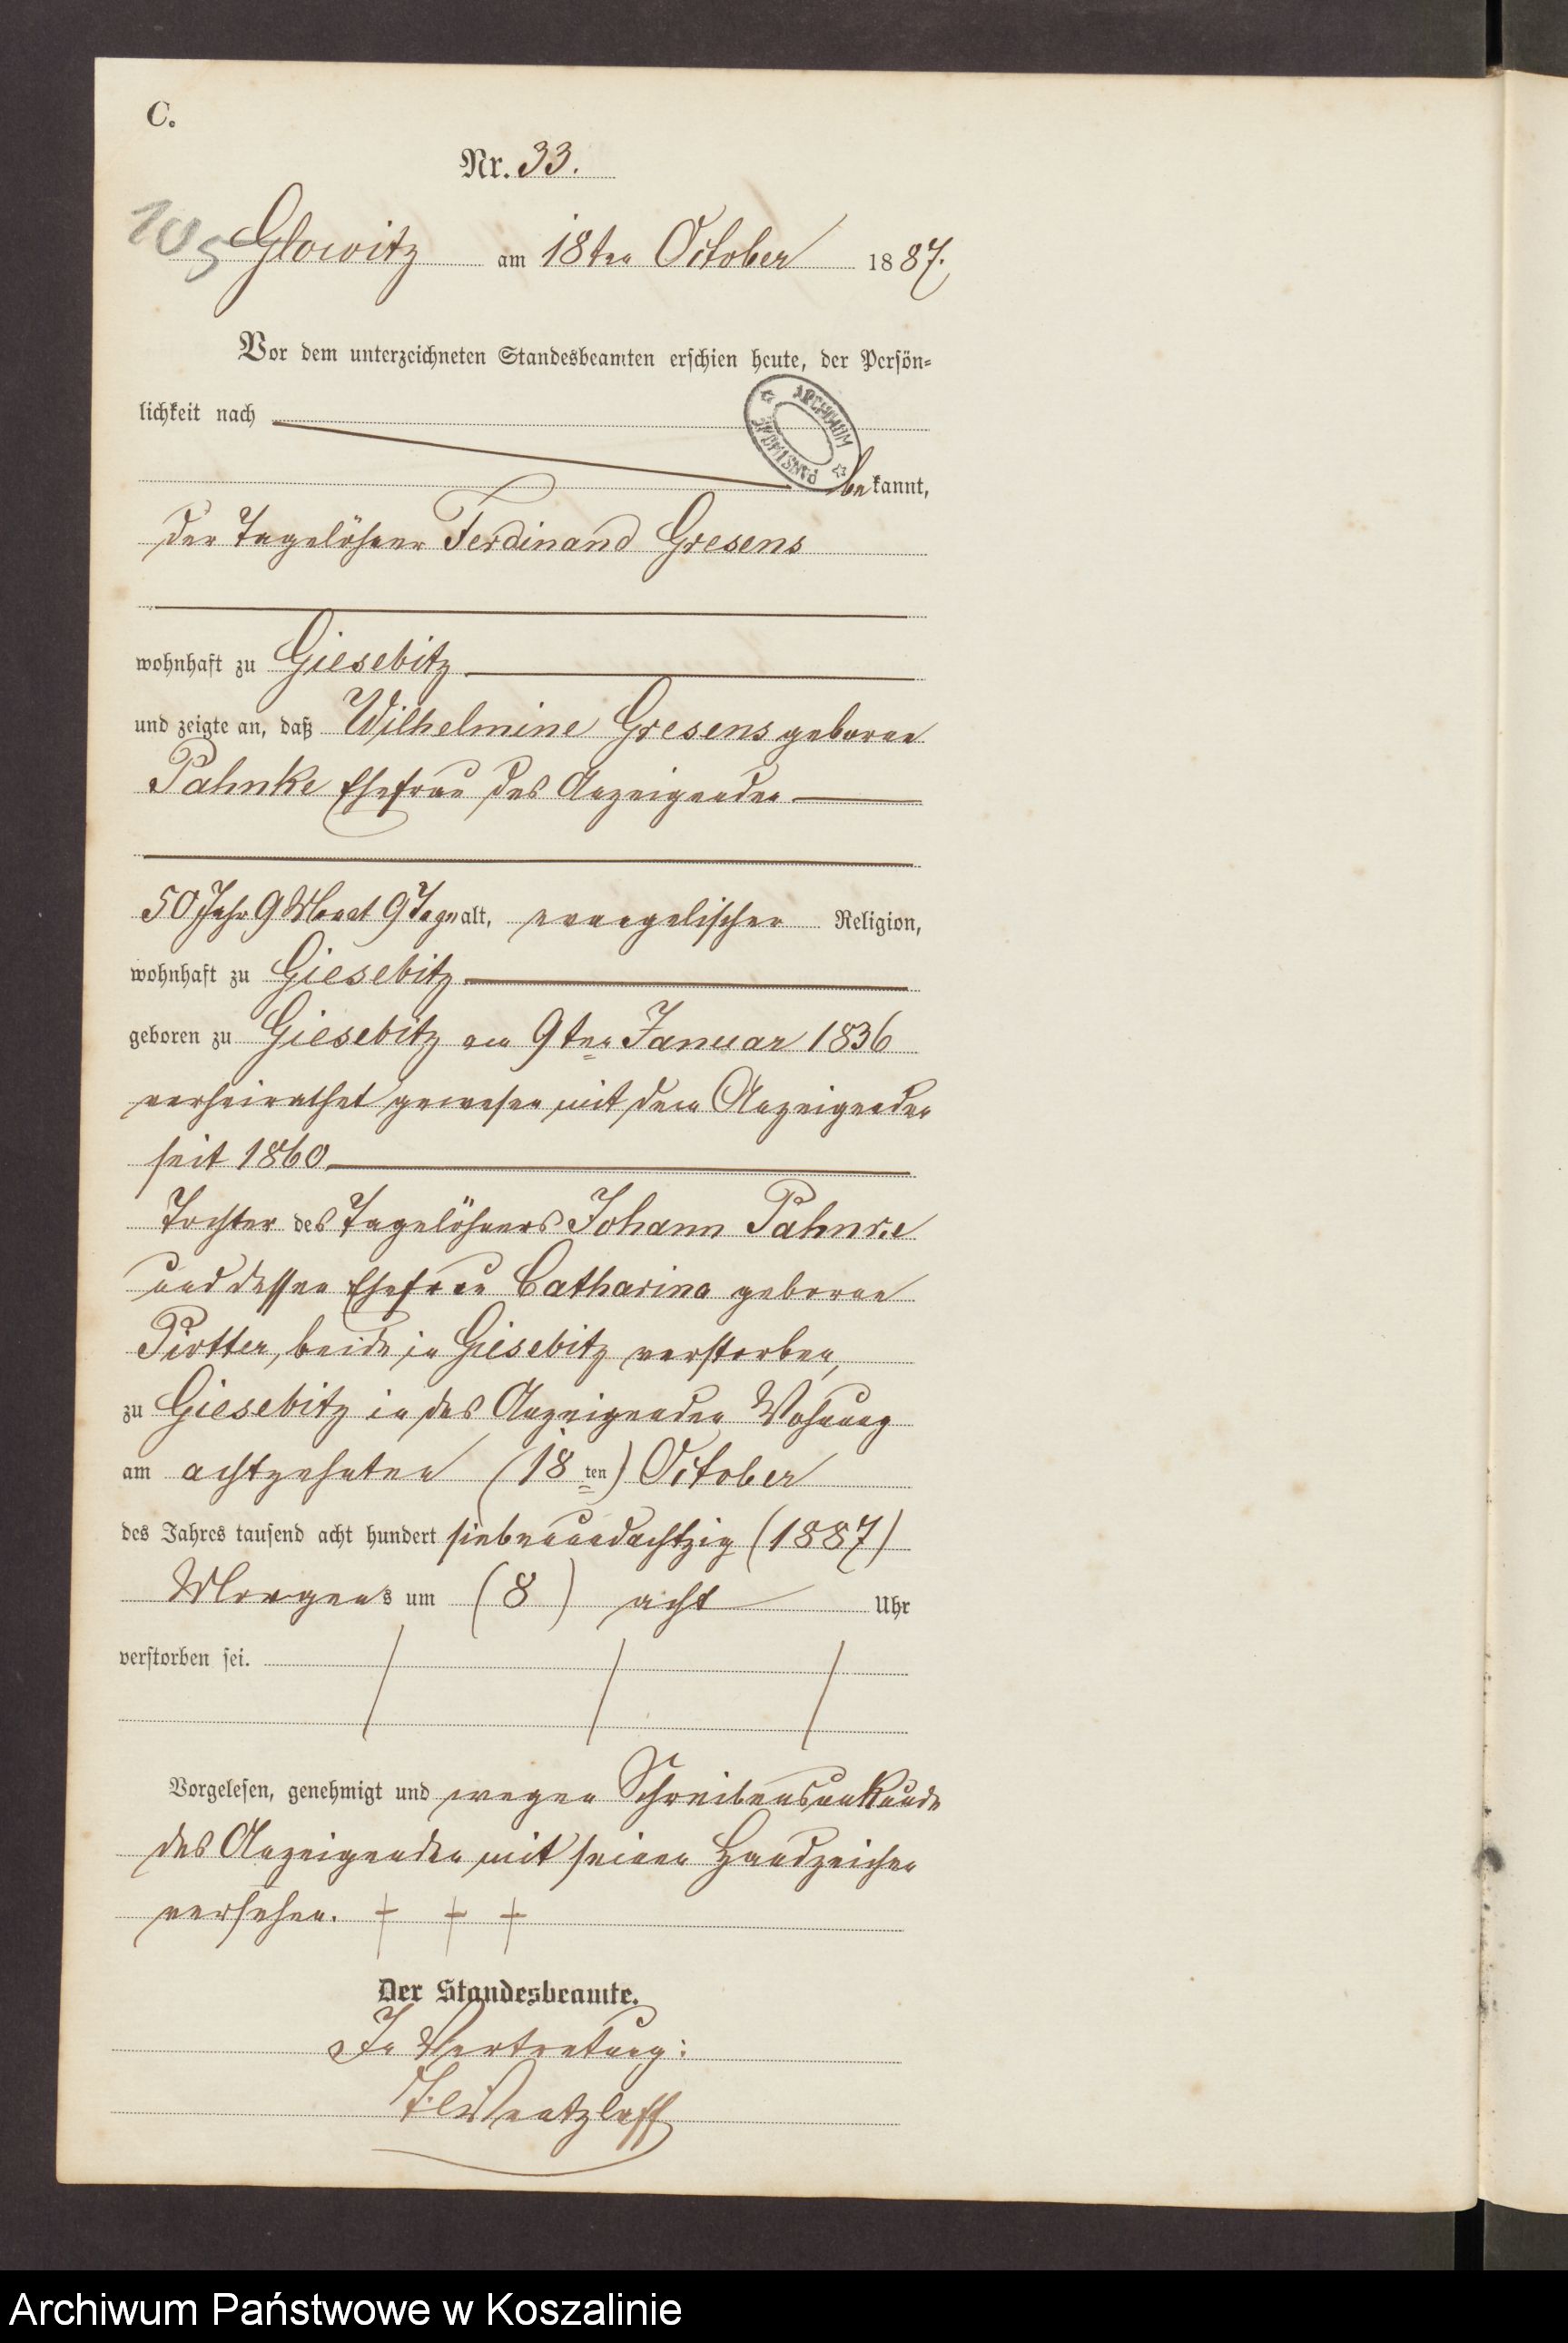 C.
Nr. 33.
105
Glowitz am 18ten October 1887.
Vor dem unterzeichneten Standesbeamten erschien heute, der Persön-
lichkeit nach
ARCHIWUM PAŃSTWOWE
bekannt,
der Tagelöhner Ferdinand Gresens
wohnhaft zu Giesebitz
und zeigte an, daß Wilhelmine Gresens geborne
Pahnke Ehefrau des Anzeigenden
50 Jahr 9 Monat 9 Tage alt, evangelischer Religion,
wohnhaft zu Giesebitz
geboren zu Giesebitz am 9ten Januar 1836
verheirathet gewesen mit dem Anzeigenden
seit 1860
Tochter des Tagelöhners Johann Pahnke
und dessen Ehefrau Catharina geborne
Piotter, beide in Giesebitz verstorben,
zu Giesebitz in des Anzeigenden Wohnung
am achtzehnten (18ten) October
des Jahres tausend acht hundert siebenundachtzig (1887)
Morgens um (8) acht Uhr
verstorben sei.
Vorgelesen, genehmigt und wegen Schreibensunkunde
des Anzeigenden mit seinen Handzeichen
versehen. + + +
Der Standesbeamte.
In Vertretung:
Wentzlaff
Archiwum Państwowe w Koszalinie